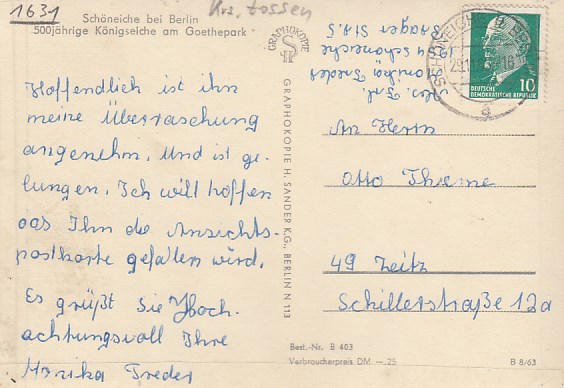 1631
Krs. Zossen
Schöneiche bei Berlin
500jährige Königseiche am Goethepark
Hoffendlich ist ihn
meine Überraschung
angenehm. Und ist ge-
lungen. Ich will hoffen
das Ihn die Ansichts-
postkarte gefallen wird.
Es grüßt Sie Hoch-
achtungsvoll Ihre
Monika Treder
GRAPHOKOPIE
GRAPHOKOPIE H. SANDER K.G., BERLIN N 113
Abs. Frl.
Monika Treder
1934 Schöneiche
SCHÖNEICHE B BERLIN
a
10
DEUTSCHE
DEMOKRATISCHE REPUBLIK
An Herrn
Otto Thieme
49 Zeitz
Schillerstraße 12a
Best.-Nr. B 403
Verbraucherpreis DM -.25
B 8/63